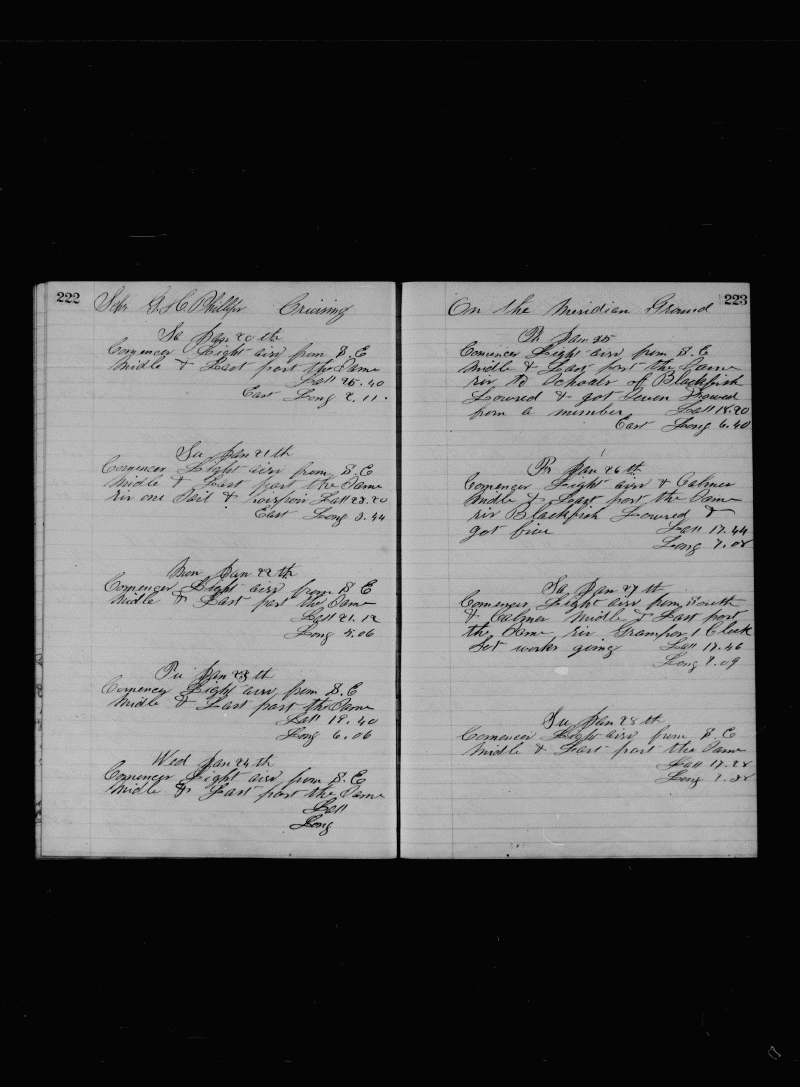 222
Schr G. H. Phillips Cruising
Sa Jan 20 th
Comences Light airs from S. E
Midle & Last part the Same
Latt 25.40
East Long 2.11.
Su Jan 21 th
Comences Light airs from S. E
Midle & Last part the Same
one Sail & Latt 23.20
East Long 3.44
Mon Jan 22 th
Comences Light airs from S E
Midle & Last part the Same
Latt 21.12
Long 5.06
Tu Jan 23 th
Comences Light airs from S. E
Midle & Last part the Same
Latt 19.40
Long 6.06
Wed Jan 24 th
Comences Light airs from S. E
Midle & Last part the Same
Latt
Long
On the Meridian Ground 223
Th Jan 25
Comences Light airs from S. E
Midle & Last part the Same
of Blackfish
Lowred & got Seven
from a Latt 18.20
East Long 6.40
Fr Jan 26 th
Comences Light airs & Calmes
Midle & Last part the Same
Blackfish Lowred &
got five Latt 17.44
Long 7.08
Sa Jan 27 th
Comences Light airs from South
& Calmes Midle & Last part
the Same 1 Clock
Set working Latt 17.46
Long 7.09
Su Jan 28 th
Comences Light airs from S. E
Midle & Last part the Same
Latt 17.28
Long